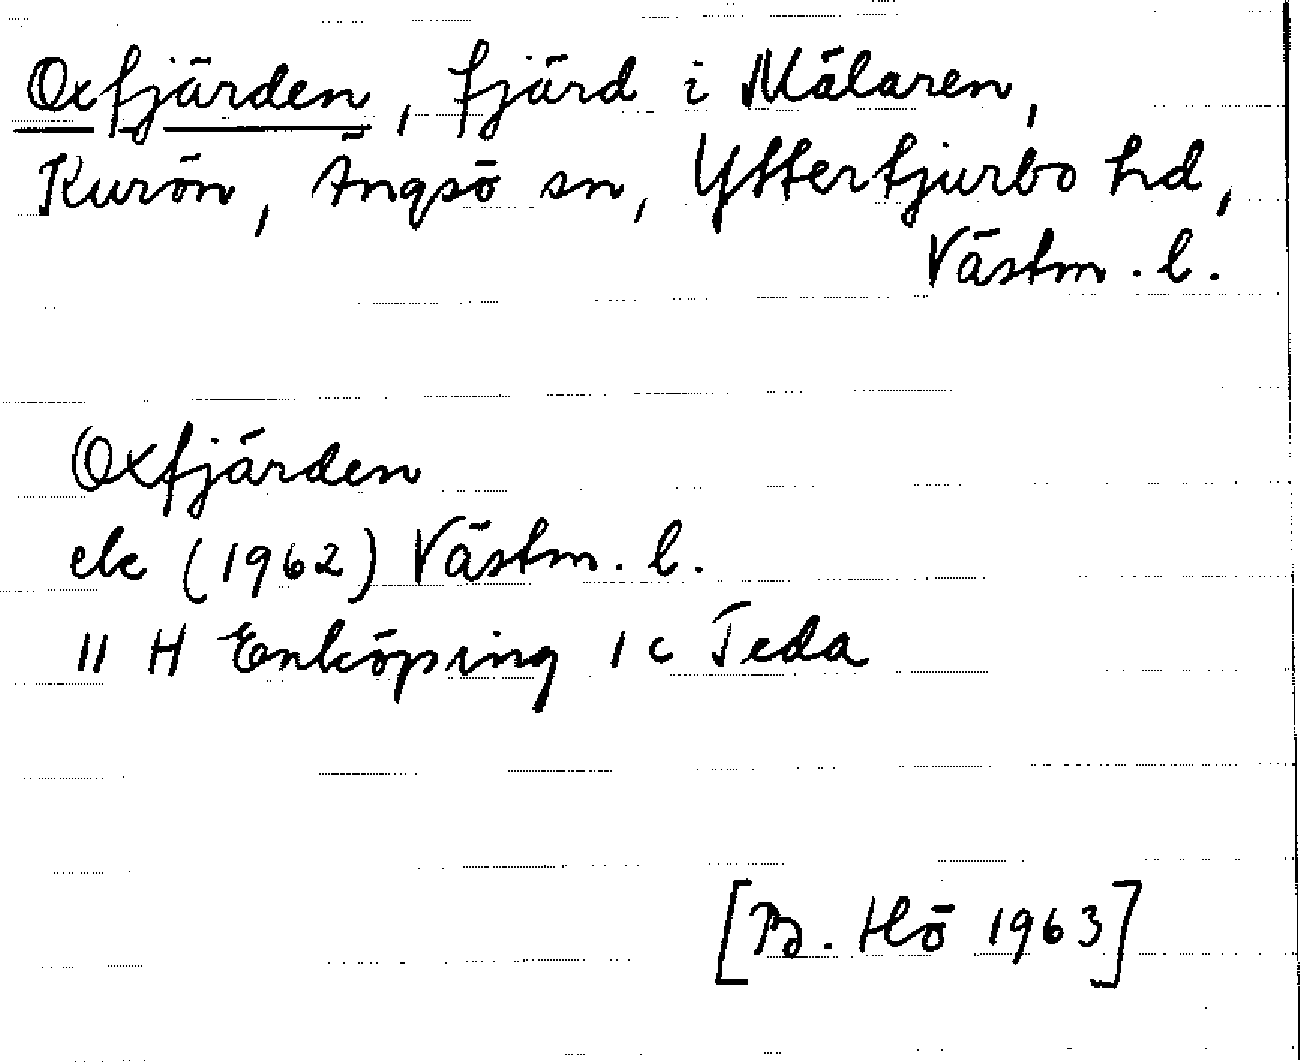 Oxfjärden, fjärd i Mälaren,
Kurön, Ängsö sn, Yttertjurbo hd,
Västm. l.
Oxfjärden
ek (1962) Västm. l.
11 H Enköping 1 c Teda
[B. Hö 1963]